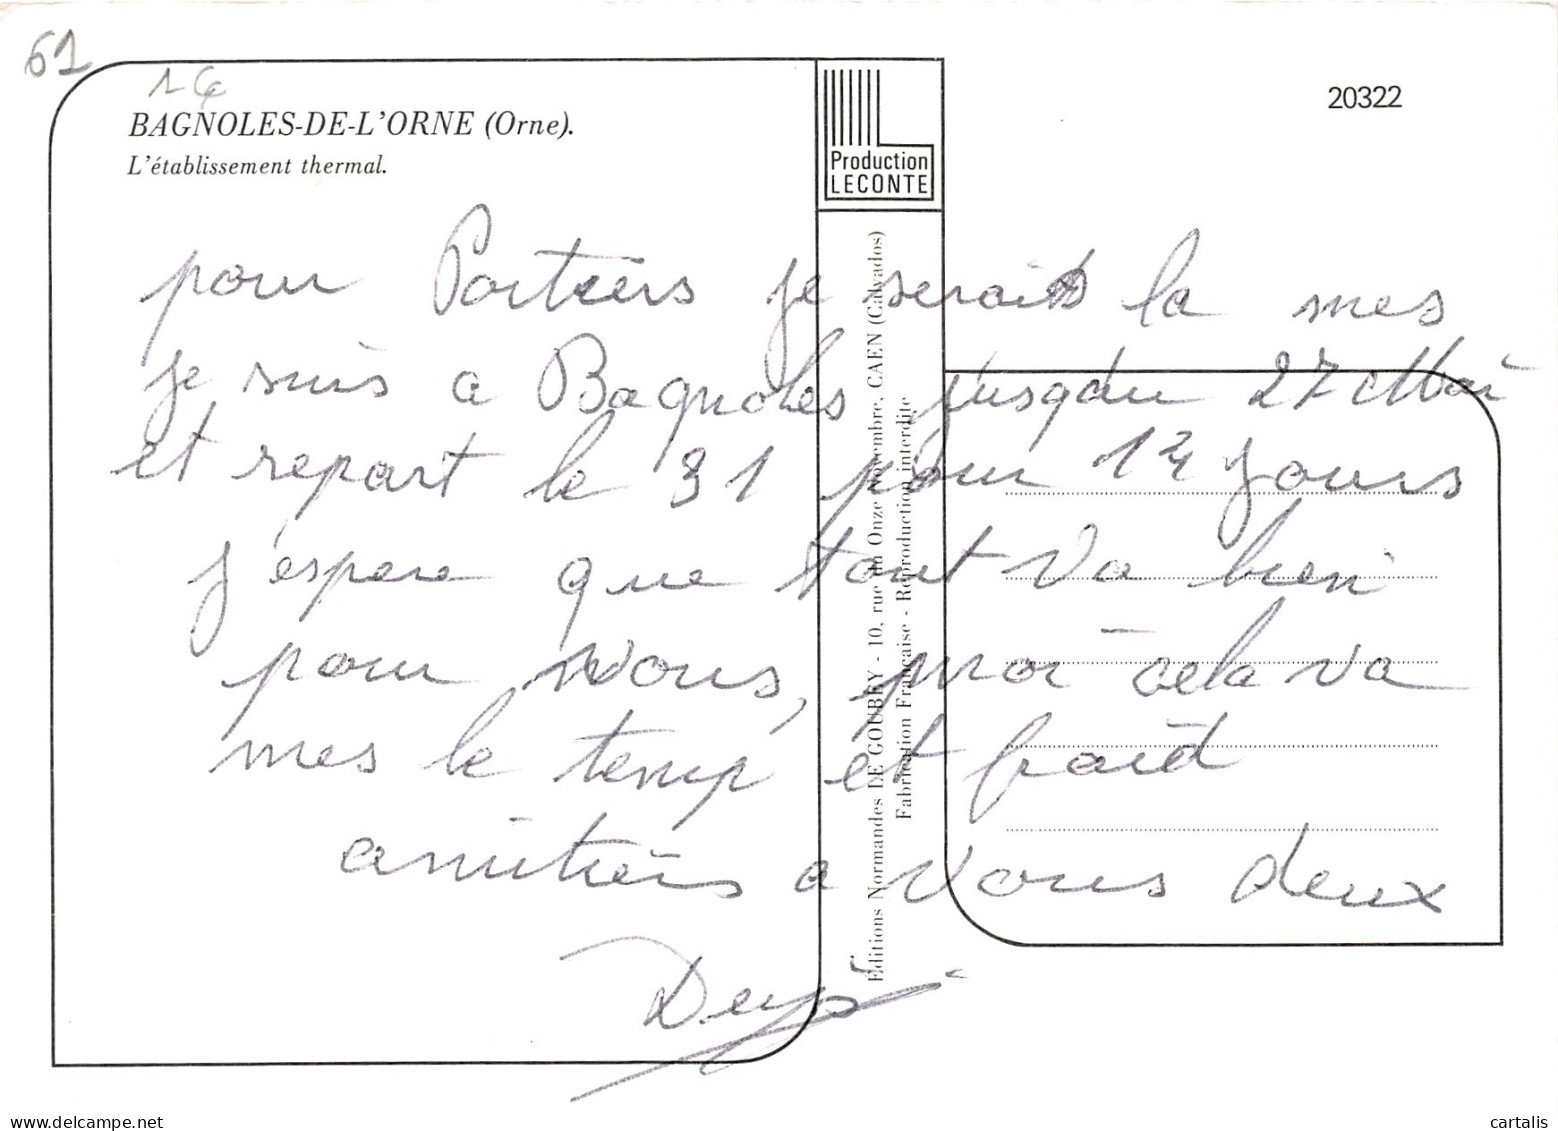 61
1 €
BAGNOLES-DE-L'ORNE (Orne).
L'établissement thermal.
Production
LECONTE
20322
pour Poitiers je serais la mes
je suis a Bagnoles jusqdu 27 Mai
et repart le 31 pour 12 jours
j'espere que tout va bien
pour vous, moi cela va
mes le temp et froid
amitiers a vous deux
Éditions Normandes LE GOUBEY - 10, rue du Onze Novembre, CAEN (Calvados)
Fabrication Française - Reproduction interdite
delcampe.net
cartalis